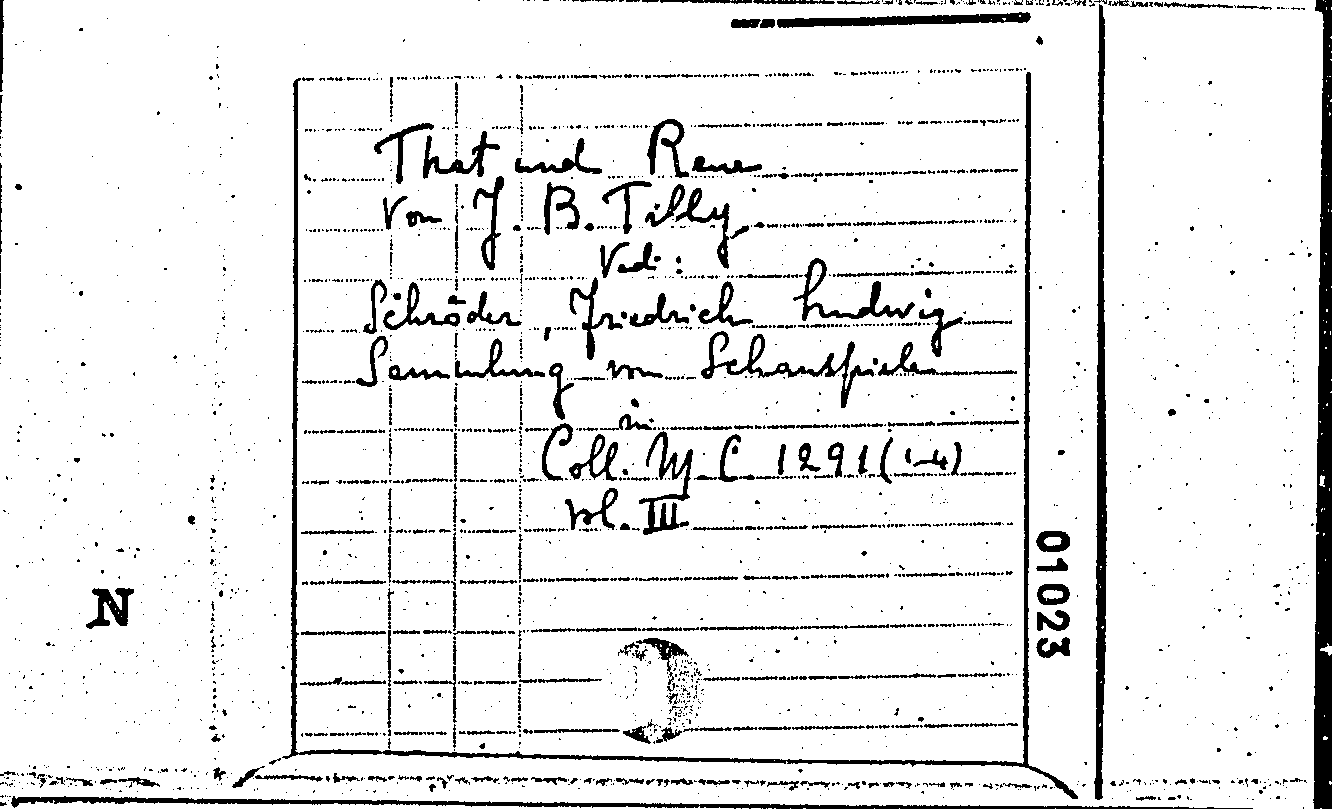 That und Reue.
von J. B. Tilly.
Vedi:
Schröder, Friedrich Ludwig
Sammlung von Schauspielen
in
Coll. M. C 1291 (1-4)
vol. III
01023
N